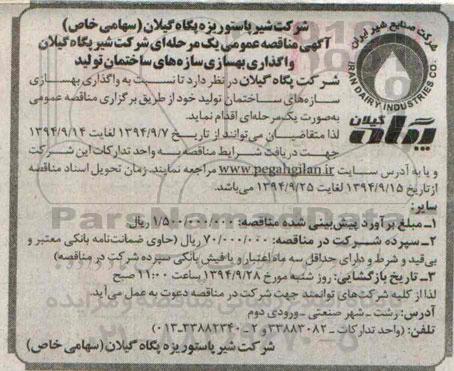 شرکت شیر پاستوریزه پگاه گیلان (سهامی خاص)
آگهی مناقصه عمومی یک مرحله‌ای شرکت شیر پگاه گیلان
واگذاری بهسازی سازه‌های ساختمان تولید
شرکت صنایع شیر ایران
IRAN DAIRY INDUSTRIES CO.
پگاه گیلان
شرکت پگاه گیلان در نظر دارد تا نسبت به واگذاری بهسازی
سازه‌های ساختمان تولید خود از طریق برگزاری مناقصه عمومی
به‌صورت یک مرحله‌ای اقدام نماید.
لذا متقاضیان می‌توانند از تاریخ ۱۳۹۴/۹/۷ لغایت ۱۳۹۴/۹/۱۴
جهت دریافت شرایط مناقصه به واحد تدارکات این شرکت
و یا به آدرس سایت www.pegahgilan.ir مراجعه نمایند. زمان تحویل اسناد مناقصه
از تاریخ ۱۳۹۴/۹/۱۵ لغایت ۱۳۹۴/۹/۲۵ می‌باشد.
سایر:
۱ـ مبلغ برآورد پیش‌بینی شده مناقصه: ۱/۵۰۰/۰۰۰/۰۰۰ ریال
۲ـ سپرده شرکت در مناقصه: ۷۰/۰۰۰/۰۰۰ ریال (حاوی ضمانت‌نامه بانکی معتبر و
بی‌قید و شرط و دارای حداقل سه ماه اعتبار و یا فیش بانکی سپرده شرکت در مناقصه)
۳ـ تاریخ بازگشایی: روز شنبه مورخ ۱۳۹۴/۹/۲۸ ساعت ۱۱:۰۰ صبح
لذا از کلیه شرکت‌های توانمند جهت شرکت در مناقصه دعوت به عمل می‌آید.
آدرس: رشت ـ شهر صنعتی ـ ورودی دوم
تلفن: (واحد تدارکات ـ ۳۳۸۸۳۰۸۲ و ۲ ـ ۳۳۸۸۲۳۴۰ـ۰۱۳)
شرکت شیر پاستوریزه پگاه گیلان (سهامی خاص)
ParsNamadData